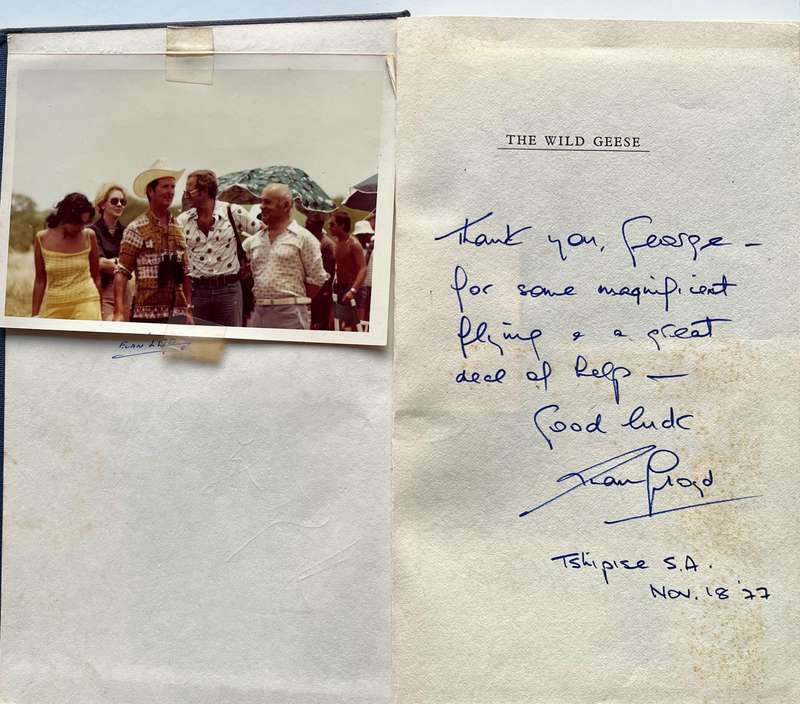 THE WILD GEESE
Thank you, George –
for some magnificent
flying & a great
deal of help –
Good luck
Euan Lloyd
Tshipise S.A.
Nov. 18 '77
EUAN